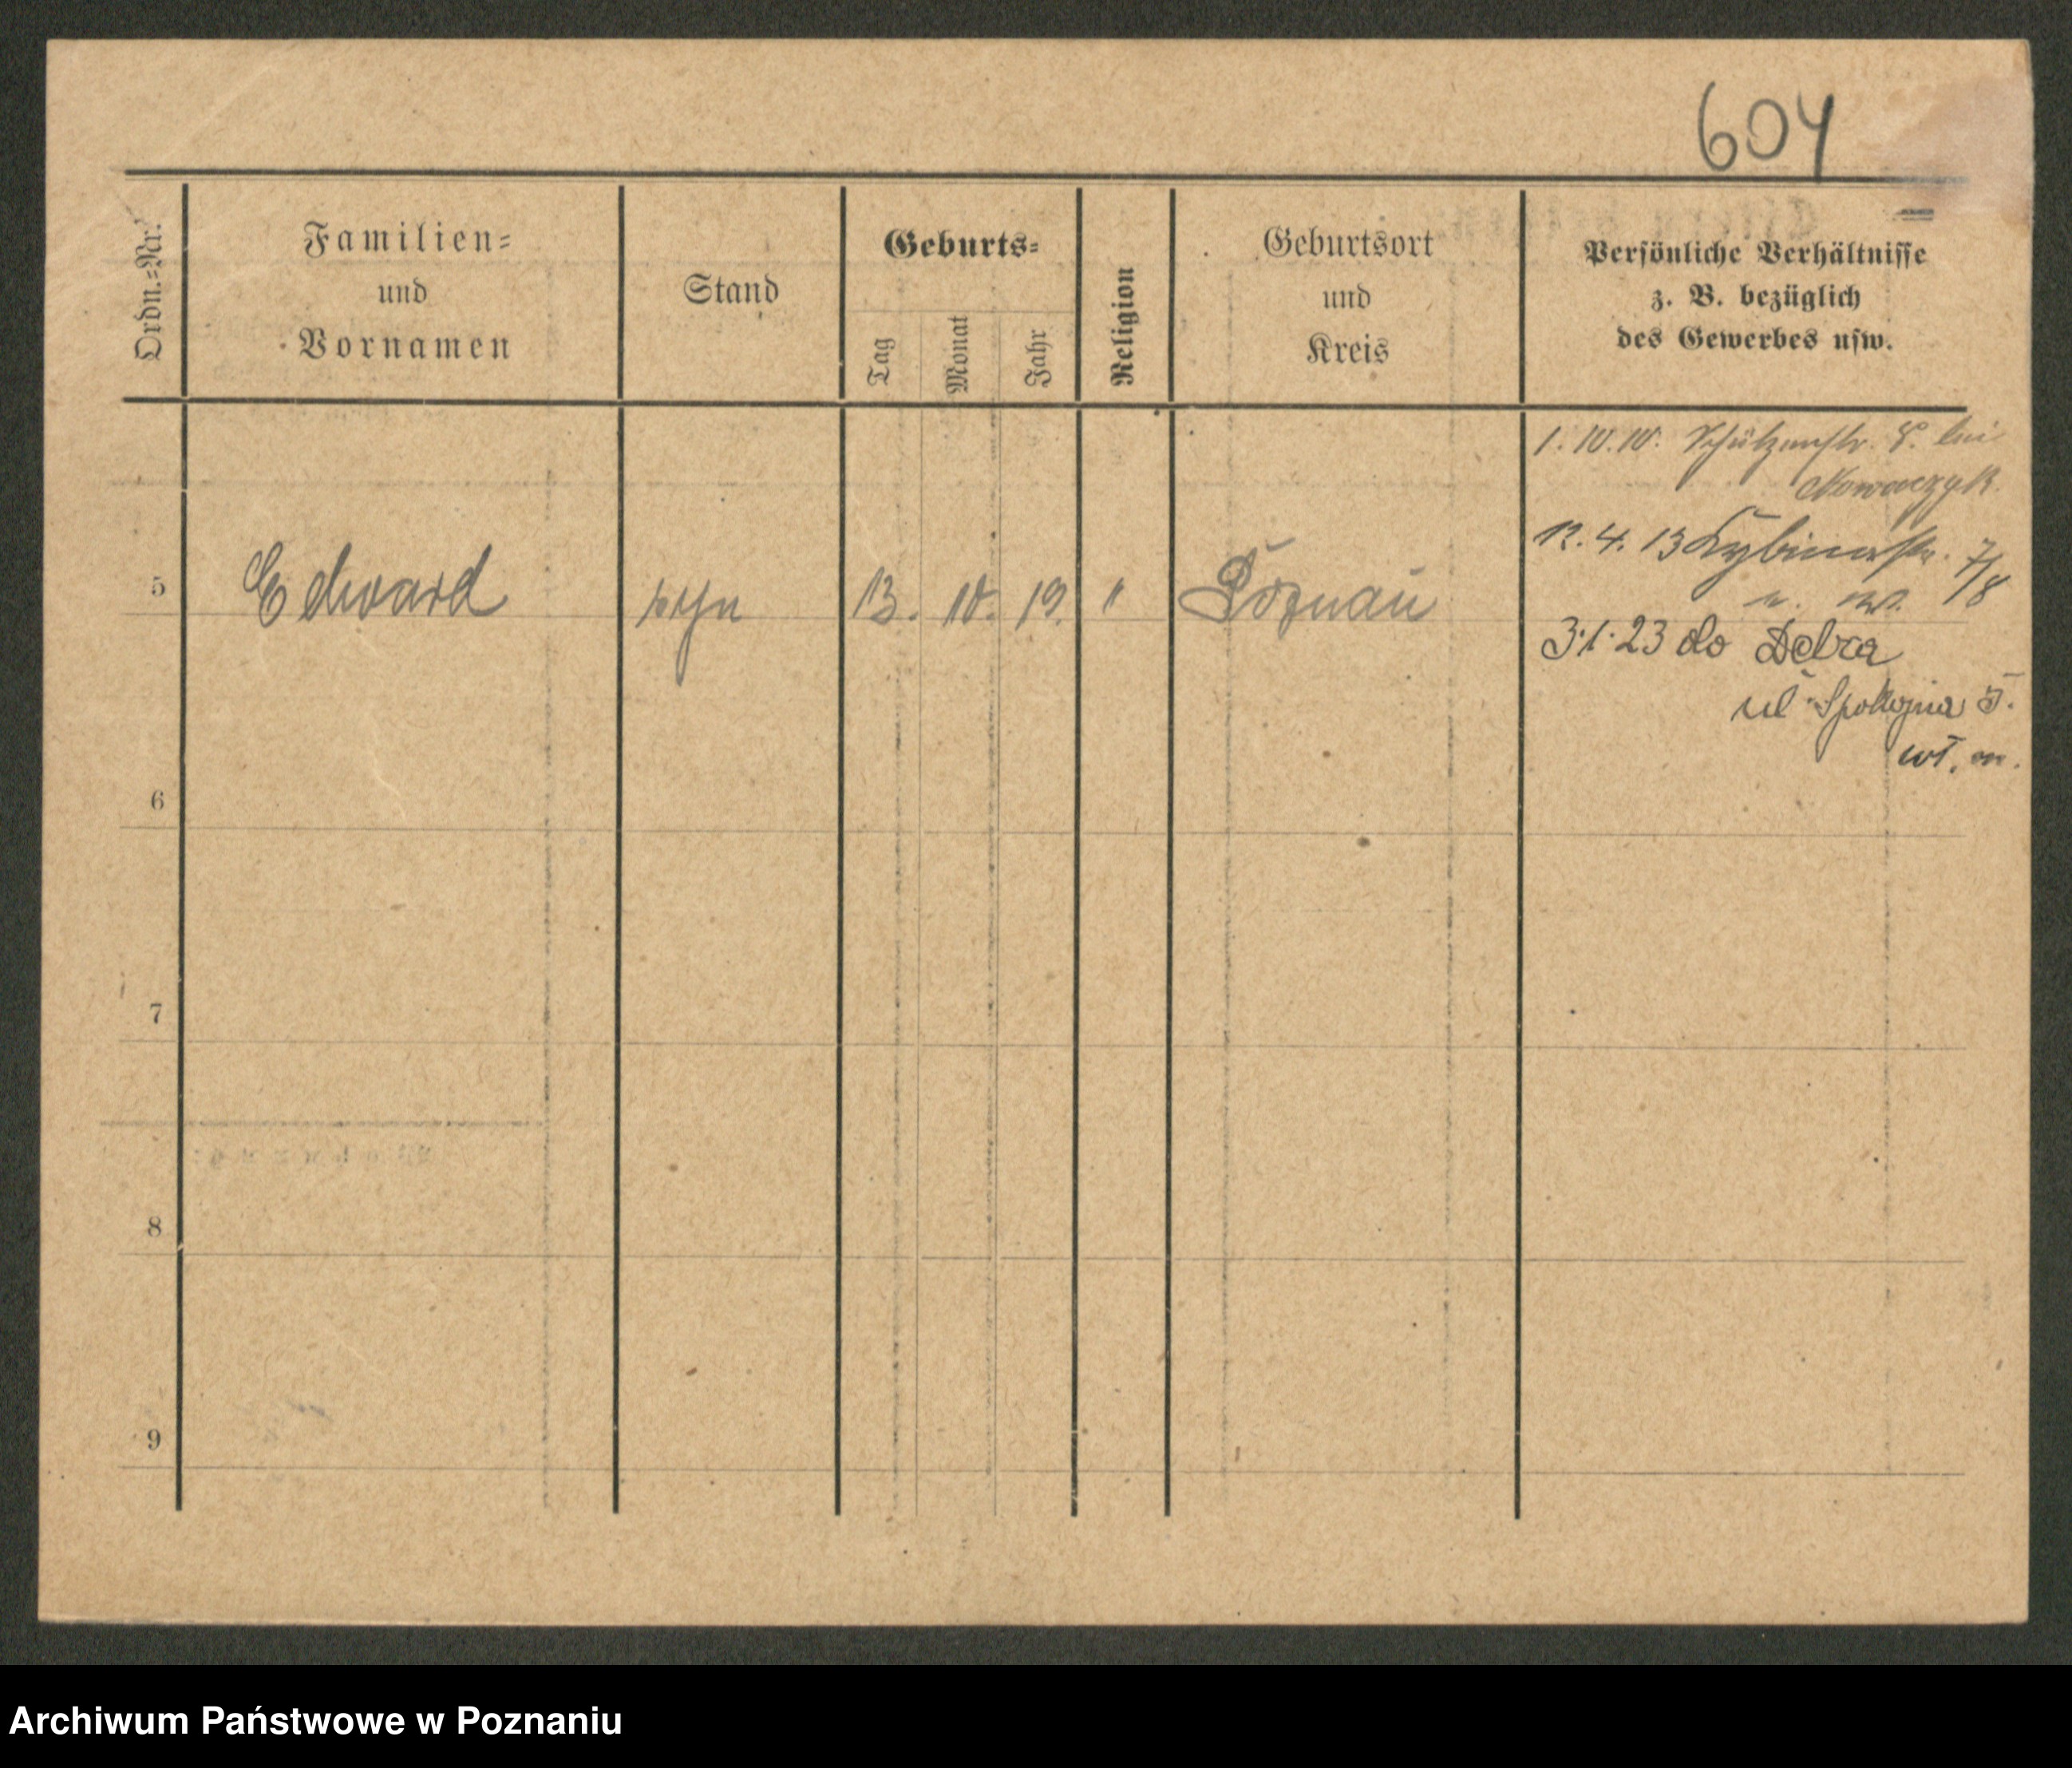 604
Ordn.=Nr.
Familien=
und
Vornamen
Stand
Geburts=
Tag
Monat
Jahr
Religion
Geburtsort
und
Kreis
Persönliche Verhältnisse
z. B. bezüglich
des Gewerbes usw.
1. 10. 10. Schützenstr. 8. bei
Nowaczyk.
12. 4. 13 Cybinastr. 7/8
5 Edward syn 13. 10. 19. " Poznań
3.1.23 do Debra
ul. Spokojna 5.
wł. m.
6
7
8
9
Archiwum Państwowe w Poznaniu